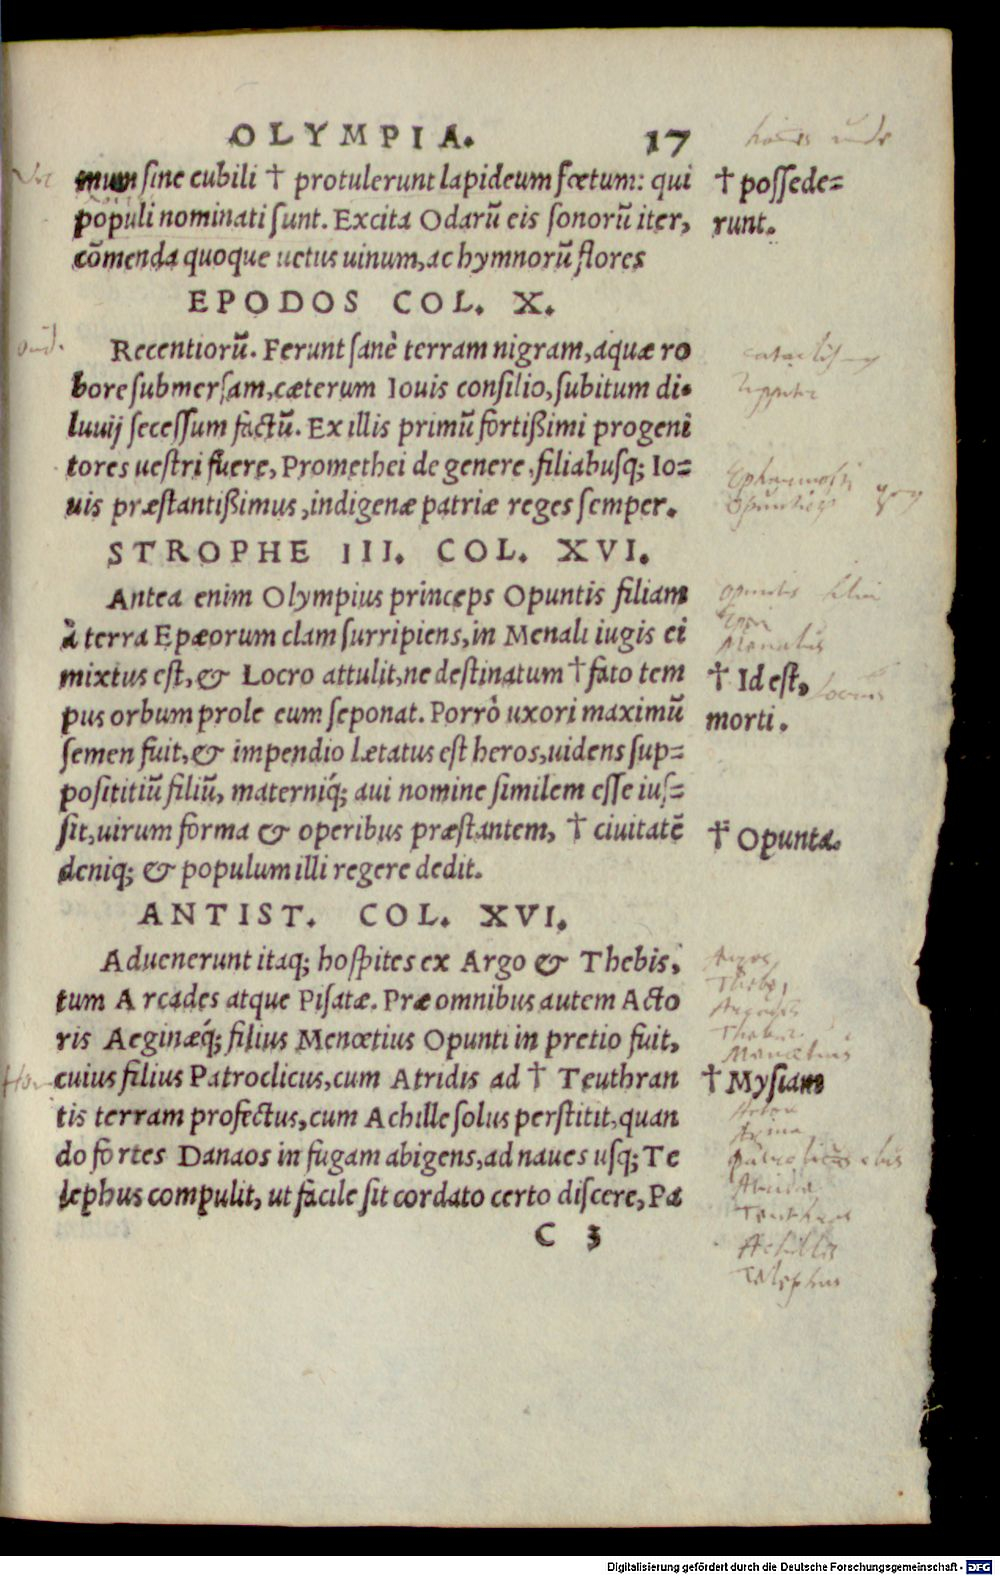 OLYMPIA. 17
mum sine cubili † protulerunt lapideum fœtum: qui
† possede=
populi nominati sunt. Excita Odarũ eis sonorũ iter,
runt.
cõmenda quoque uetus uinum, ac hymnorũ flores
EPODOS COL. X.
Recentiorũ. Ferunt sanè terram nigram, aquæ ro
bore submersam, cæterum Iouis consilio, subitum di-
luuij secessum factũ. Ex illis primũ fortißimi progeni
tores uestri fuere, Promethei de genere, filiabusq; Io=
uis præstantißimus, indigenæ patriæ reges semper.
STROPHE III. COL. XVI.
Antea enim Olympius princeps Opuntis filiam
à terra Epæorum clam surripiens, in Menali iugis ei
mixtus est, & Locro attulit, ne destinatum † fato tem
† Id est,
pus orbum prole eum seponat. Porrò uxori maximũ
morti.
semen fuit, & impendio lætatus est heros, uidens sup=
posititiũ filiũ, materniq́; aui nomine similem esse ius=
sit, uirum forma & operibus præstantem, † ciuitatẽ
† Opunta.
deniq; & populum illi regere dedit.
ANTIST. COL. XVI.
Aduenerunt itaq; hospites ex Argo & Thebis,
tum Arcades atque Pisatæ. Præ omnibus autem Acto
ris Aeginæq́; filius Menœtius Opunti in pretio fuit,
Menœtius
cuius filius Patroclicus, cum Atridis ad † Teuthran
† Mysiam
tis terram profectus, cum Achille solus perstitit, quan
do fortes Danaos in fugam abigens, ad naues usq; Te
lephus compulit, ut facile sit cordato certo discere, Pa
C 3
Achilles
Telephus
Digitalisierung gefördert durch die Deutsche Forschungsgemeinschaft - DFG